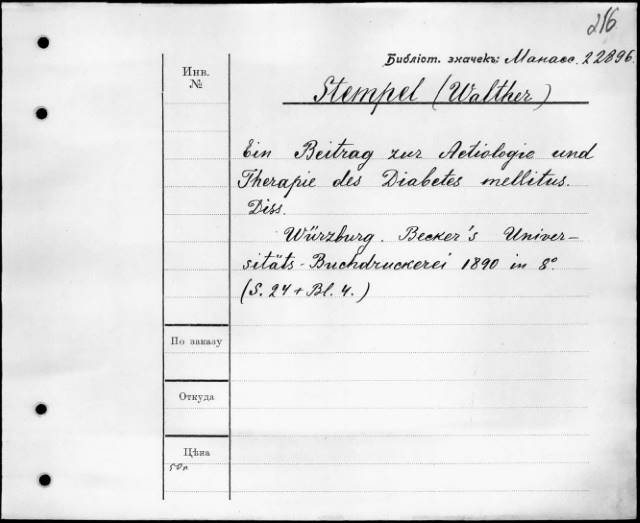 216
Библіот. значекъ: Манасс. 22896.
Инв.
№
Stempel (Walther)
Ein Beitrag zur Aetiologie und
Therapie des Diabetes mellitus.
Diss.
Würzburg. Becker's Univer-
sitäts-Buchdruckerei 1890 in 8°.
(S. 24 + Bl. 4.)
По заказу
Откуда
Цѣна
50 к